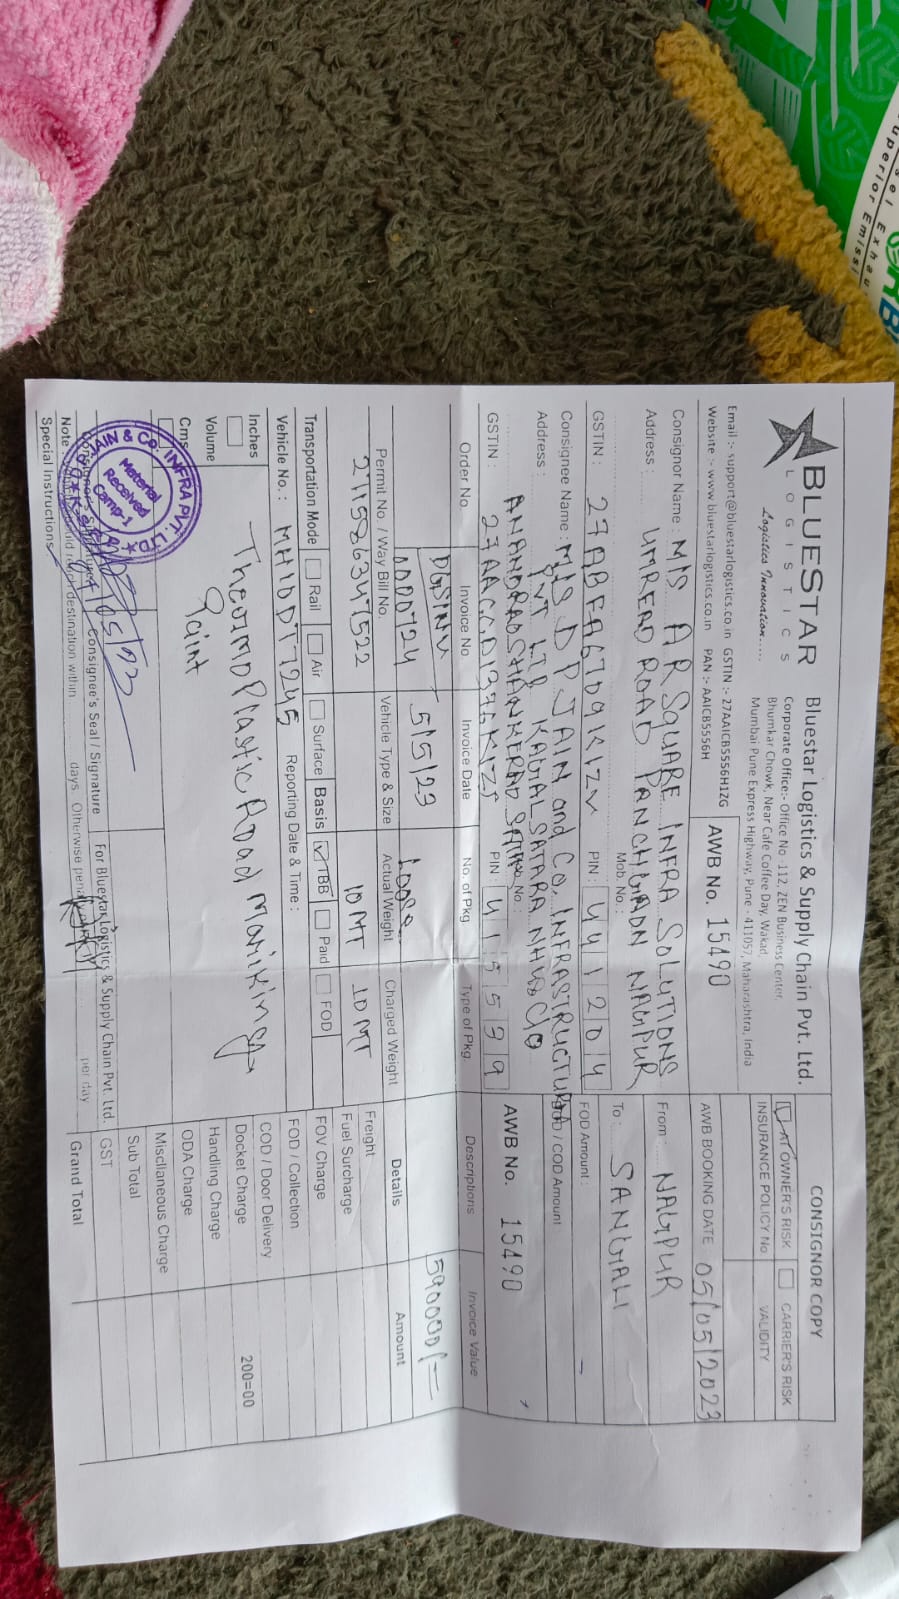 BLUESTAR
LOGISTICS
Logistics Innovation.....
Bluestar Logistics & Supply Chain Pvt. Ltd.
Corporate Office:- Office No. 112, ZEN Business Center,
Bhumkar Chowk, Near Cafe Coffee Day, Wakad,
Mumbai Pune Express Highway, Pune - 411057, Maharashtra, India
Email :- support@bluestarlogistics.co.in GSTIN :- 27AAICB5556H1ZG
Website :- www.bluestarlogistics.co.in PAN :- AAICB5556H
AWB No. 15490
CONSIGNOR COPY
AT OWNER'S RISK CARRIER'S RISK
INSURANCE POLICY No. VALIDITY
AWB BOOKING DATE 05/05/2023
Consignor Name : M/S A R SQUARE INFRA SOLUTIONS
Address : UMREAD ROAD PANCHGAON NAGPUR
Mob. No. :
GSTIN : 27ABFA67091K1ZV PIN : 441204
From : NAGPUR
To : SANGALI
Consignee Name : M/S D P JAIN and CO. INFRASTRUCTURE
Address : PVT LTD KAGAL SATARA NH4 C/O
ANANDRAO SHANKERAO
GSTIN : PIN : 415539
FOD Amount :
/ COD Amount
AWB No. 15490
Order No. Invoice No. Invoice Date No. of Pkg. Type of Pkg. Descriptions Invoice Value
DGSINV
0000724 5/5/23 Loose 590000/=
Permit No. / Way Bill No. Vehicle Type & Size Actual Weight Charged Weight Details Amount
271586347522 10 MT 10 MT
Transportation Mode Rail Air Surface Basis TBB Paid FOD
Vehicle No. : MH10DT7245 Reporting Date & Time :
Inches
Volume
Cms
ThermoPlastic Road Marikings
Paint
Freight
Fuel Surcharge
FOV Charge
FOD / Collection
COD / Door Delivery
Docket Charge 200=00
Handling Charge
ODA Charge
Miscllaneous Charge
Sub Total
GST
Grand Total
JAIN & CO. INFRA PVT. LTD.
Material
Received
Camp-1
Consignee's Seal / Signature
For Bluestar Logistics & Supply Chain Pvt. Ltd.
Note destination within days. Otherwise per day
Special Instructions